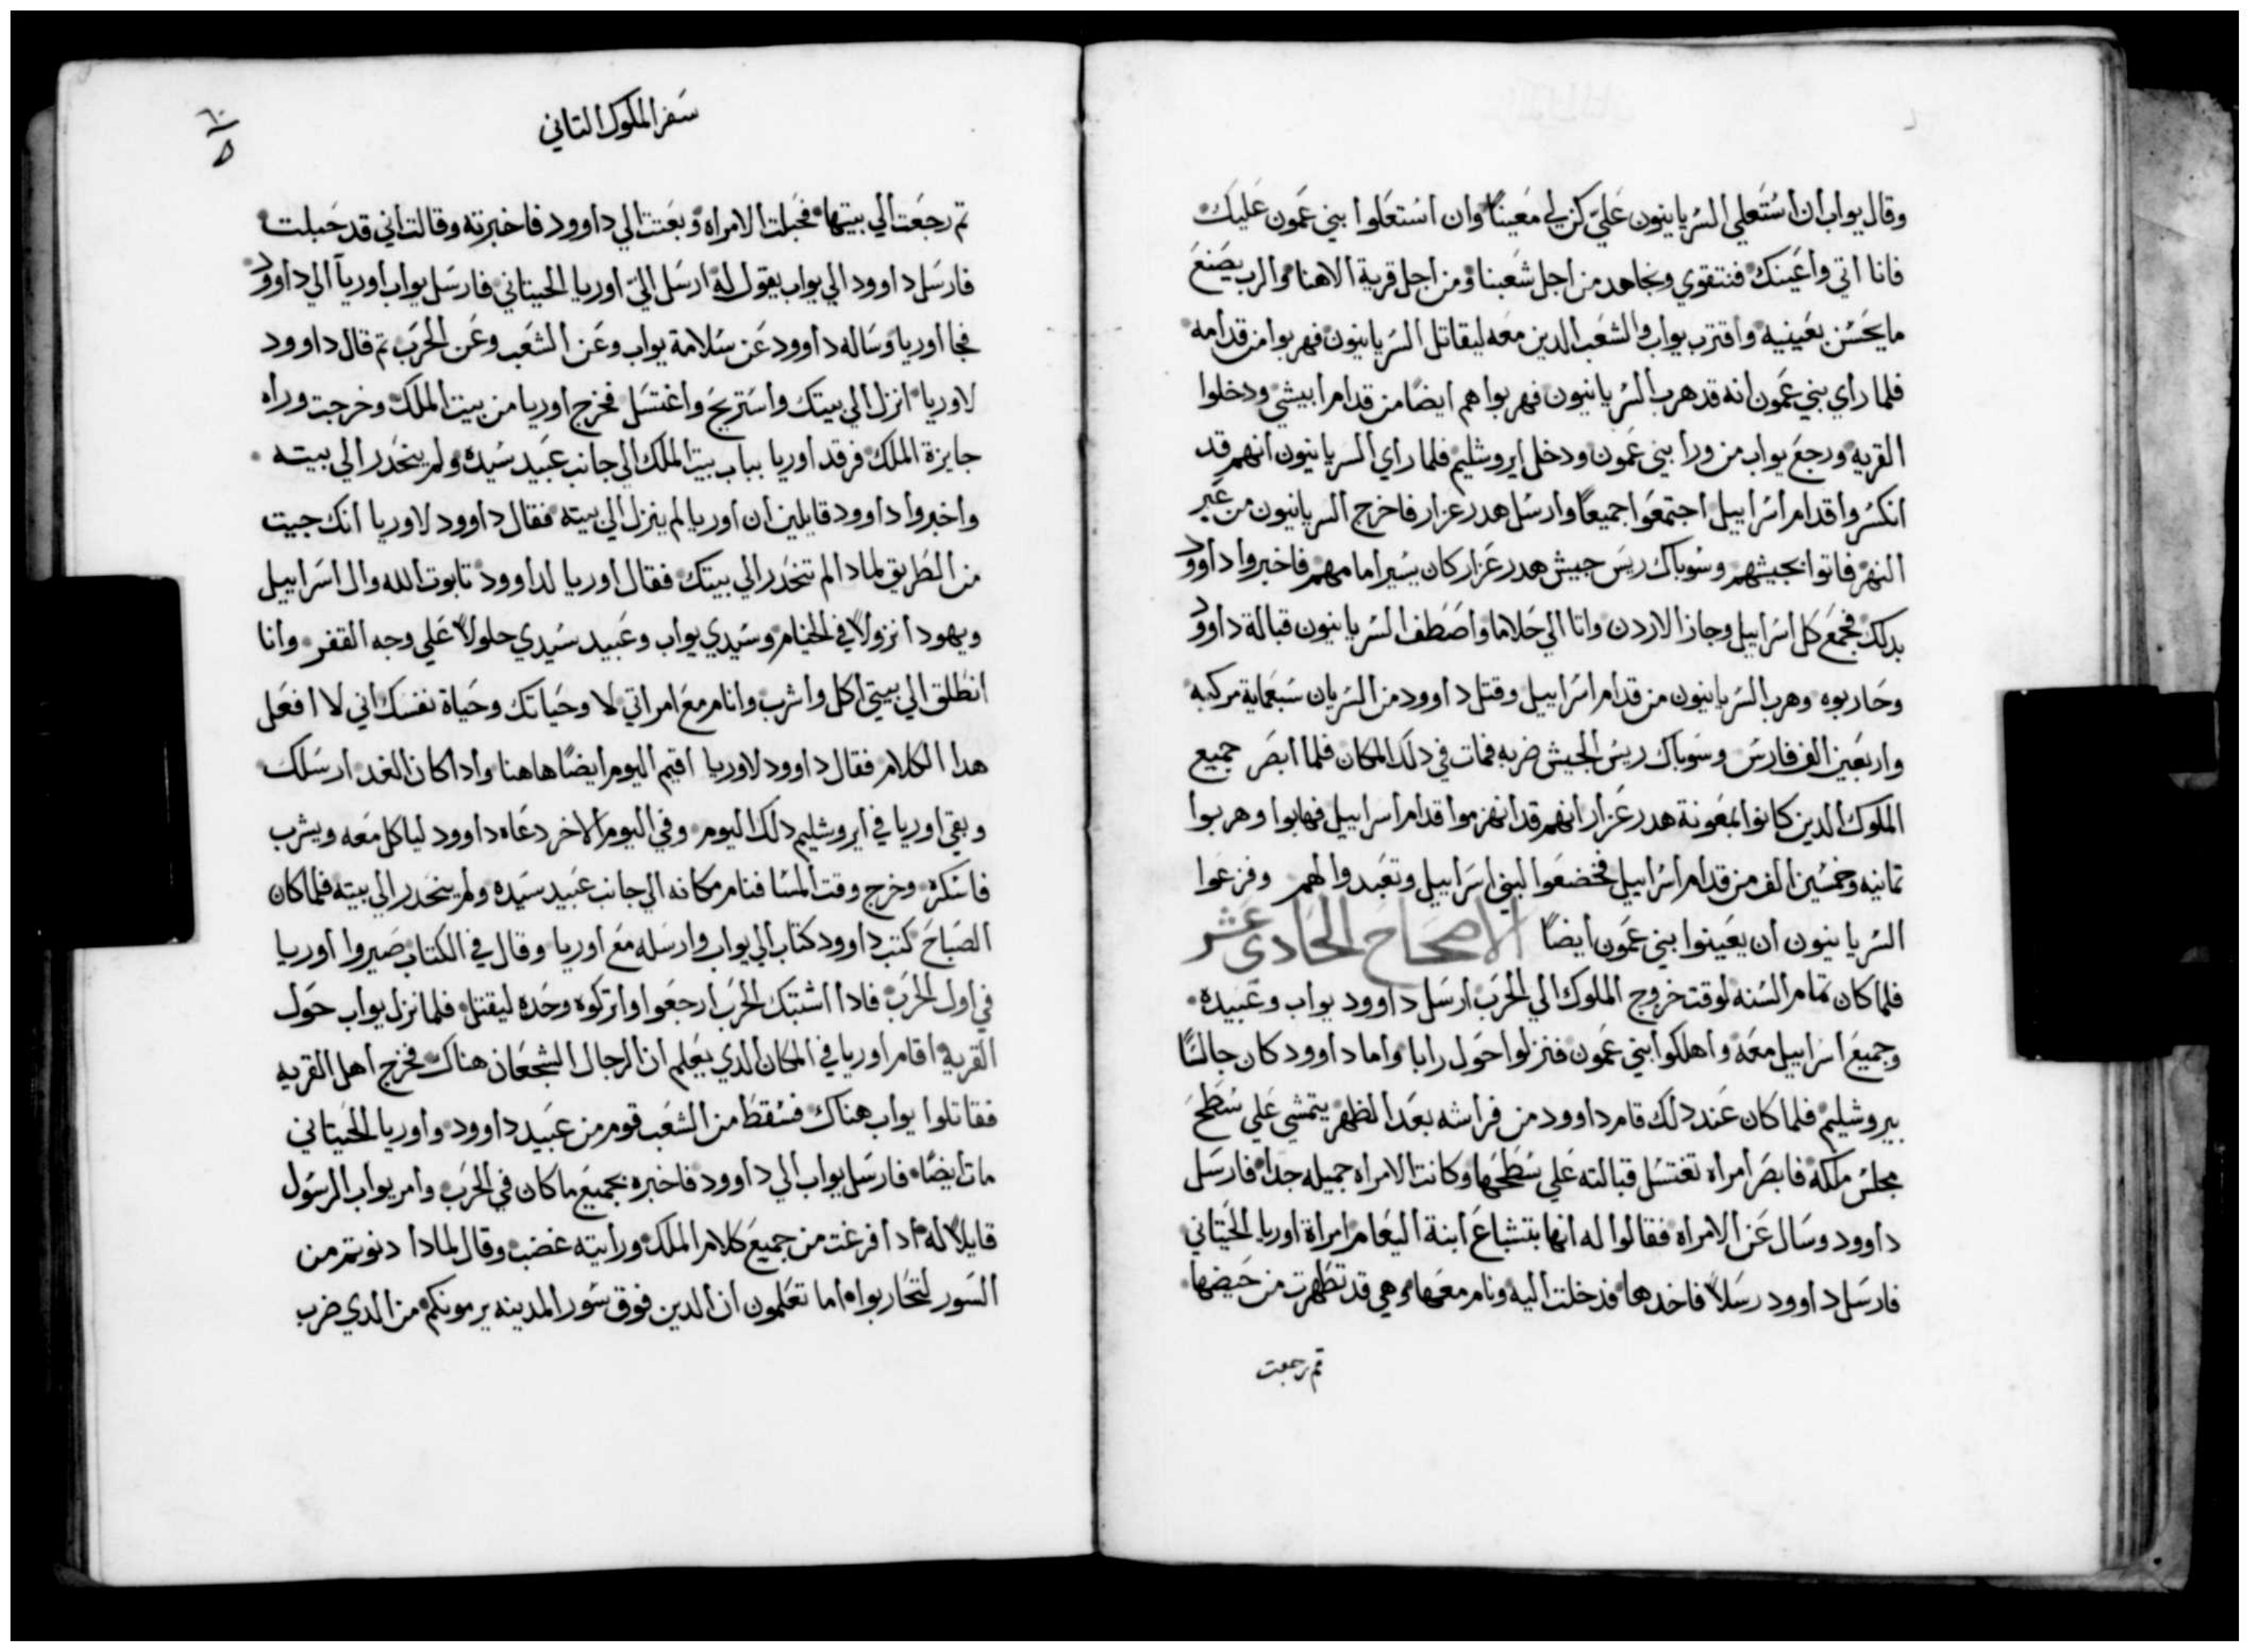 وقال يواب ان استعلي السريانيون علي كن لي معينا وان استعلوا بني عمون عليك
فانا اتي واعينك فنتقوي ونجاهد من اجل شعبنا ومن اجل قرية الاهنا والرب يصنع
ما يحسن بعينيه واقترب يواب والشعب الدين معه ليقاتل السريانيون فهربوا من قدامه
فلما راي بني عمون انه قد هرب السريانيون فهربوا هم ايضا من قدام ابيشي ودخلوا
القريه ورجع يواب من ورا بني عمون ودخل ايروشليم فلما راي السريانيون انهم قد
انكسروا قدام اسراييل اجتمعوا جميعا وارسل هدر عزار فاخرج السريانيون من عبر
النهر فاتوا بجيشهم وسوباك ريس جيش هدر عزار كان يسير امامهم فاخبروا داوود
بدلك فجمع كل اسراييل وجاز الاردن واتا الي حلاما واصطف السريانيون قبالة داوود
وحاربوه وهرب السريانيون من قدام اسراييل وقتل داوود من السريان سبعماية مركبه
واربعين الف فارس وسوباك ريس الجيش ضربه فمات في دلك المكان فلما ابصر جميع
الملوك الدين كانوا لمعونة هدر عزار انهم قد انهزموا قدام اسراييل فهابوا وهربوا
تمانيه وخمسين الف من قدام اسراييل فخضعوا لبني اسراييل وتعبدوا لهم وفزعوا
السريانيون ان يعينوا بني عمون ايضا الاصحاح الحادي عشر
فلما كان تمام السنه لوقت خروج الملوك الي الحرب ارسل داوود يواب وعبيده
وجميع اسراييل معه واهلكوا بني عمون فنزلوا حول رابا واما داوود كان جالسا
بيروشليم فلما كان عند دلك قام داوود من فراشه بعد الظهر يتمشي علي سطح
مجلس ملكه فابصر امراه تغتسل قبالته علي سطحها وكانت الامراه جميله جدا فارسل
داوود وسال عن الامراه فقالوا له انها بتشباع ابنة اليعام امراة اوريا الحيتاني
فارسل داوود رسلا فاخدها فدخلت اليه ونام معها وهي قد تطهرت من حيضها
تم رجعت
سفر الملوك التاني
تم رجعت الي بيتها فحبلت الامراه وبعتت الي داوود فاخبرته وقالت اني قد حبلت
فارسل داوود الي يواب يقول له ارسل الي اوريا الحيتاني فارسل يواب اوريا الي داوود
فجا اوريا وساله داوود عن سلامة يواب وعن الشعب وعن الحرب تم قال داوود
لاوريا انزل الي بيتك واستريح واغتسل فخرج اوريا من بيت الملك وخرجت وراه
جايزة الملك فرقد اوريا بباب بيت الملك الي جانب عبيد سيده ولم ينحدر الي بيته
واخبروا داوود قايلين ان اوريا لم ينزل الي بيته فقال داوود لاوريا انك جيت
من الطريق لمادا لم تنحدر الي بيتك فقال اوريا لداوود تابوت الله وال اسراييل
ويهودا نزولا في الخيام وسيدي يواب وعبيد سيدي حلولا علي وجه القفر وانا
انطلق الي بيتي اكل واشرب وانام مع امراتي لا وحياتك وحياة نفسك اني لا افعل
هدا الكلام فقال داوود لاوريا اقيم اليوم ايضا هاهنا وادا كان الغد ارسلك
وبقي اوريا في ايروشليم دلك اليوم وفي اليوم الاخر دعاه داوود لياكل معه ويشرب
فاسكره وخرج وقت المسا فنام مكانه الي جانب عبيد سيده ولم ينحدر الي بيته فلما كان
الصباح كتب داوود كتاب الي يواب وارسله مع اوريا وقال في الكتاب صيروا اوريا
في اول الحرب فادا اشتبك الحرب ارجعوا واتركوه وحده ليقتل فلما نزل يواب حول
القريه اقام اوريا في المكان الدي يعلم ان الرجال الشجعان هناك فخرج اهل القريه
فقاتلوا يواب هناك فسقط من الشعب قوم من عبيد داوود واوريا الحيتاني
مات ايضا فارسل يواب الي داوود فاخبره بجميع ما كان في الحرب وامر يواب الرسول
قايلا له ادا فرغت من جميع كلام الملك ورايته غضب وقال لمادا دنوتم من
السور لتحاربوا اما تعلمون ان الدين فوق سور المدينه يرمونكم من الدي ضرب